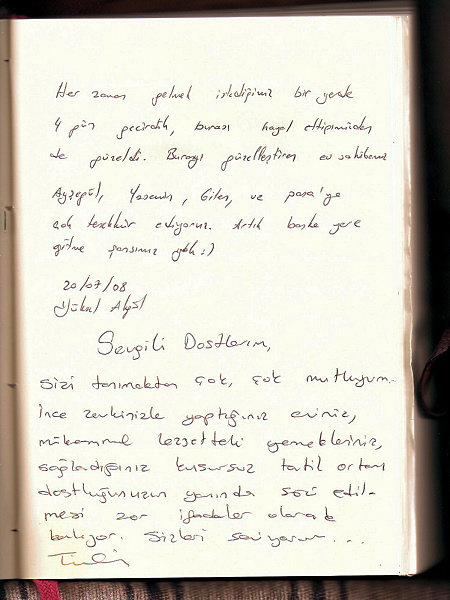 Her zaman gelmek istediğimiz bir yerde
4 gün geçirdik, burası hayal ettiğimizden
de güzeldi. Burayı güzelleştiren ev sahibemiz
Ayşegül, Yasemin, ve paşa'ya
çok teşekkür ediyoruz. Artık başka yere
gitme şansımız yok :)
20/07/08
Yüksel
Sevgili Dostlarım,
Sizi tanımaktan çok, çok mutluyum.
İnce zevkinizle yaptığınız eviniz,
mükemmel lezzetteki yemekleriniz,
sağladığınız kusursuz tatil ortamı
dostluğunuzun yanında sözü edil-
mesi zor ifadeler olarak
kalıyor. Sizleri seviyorum...